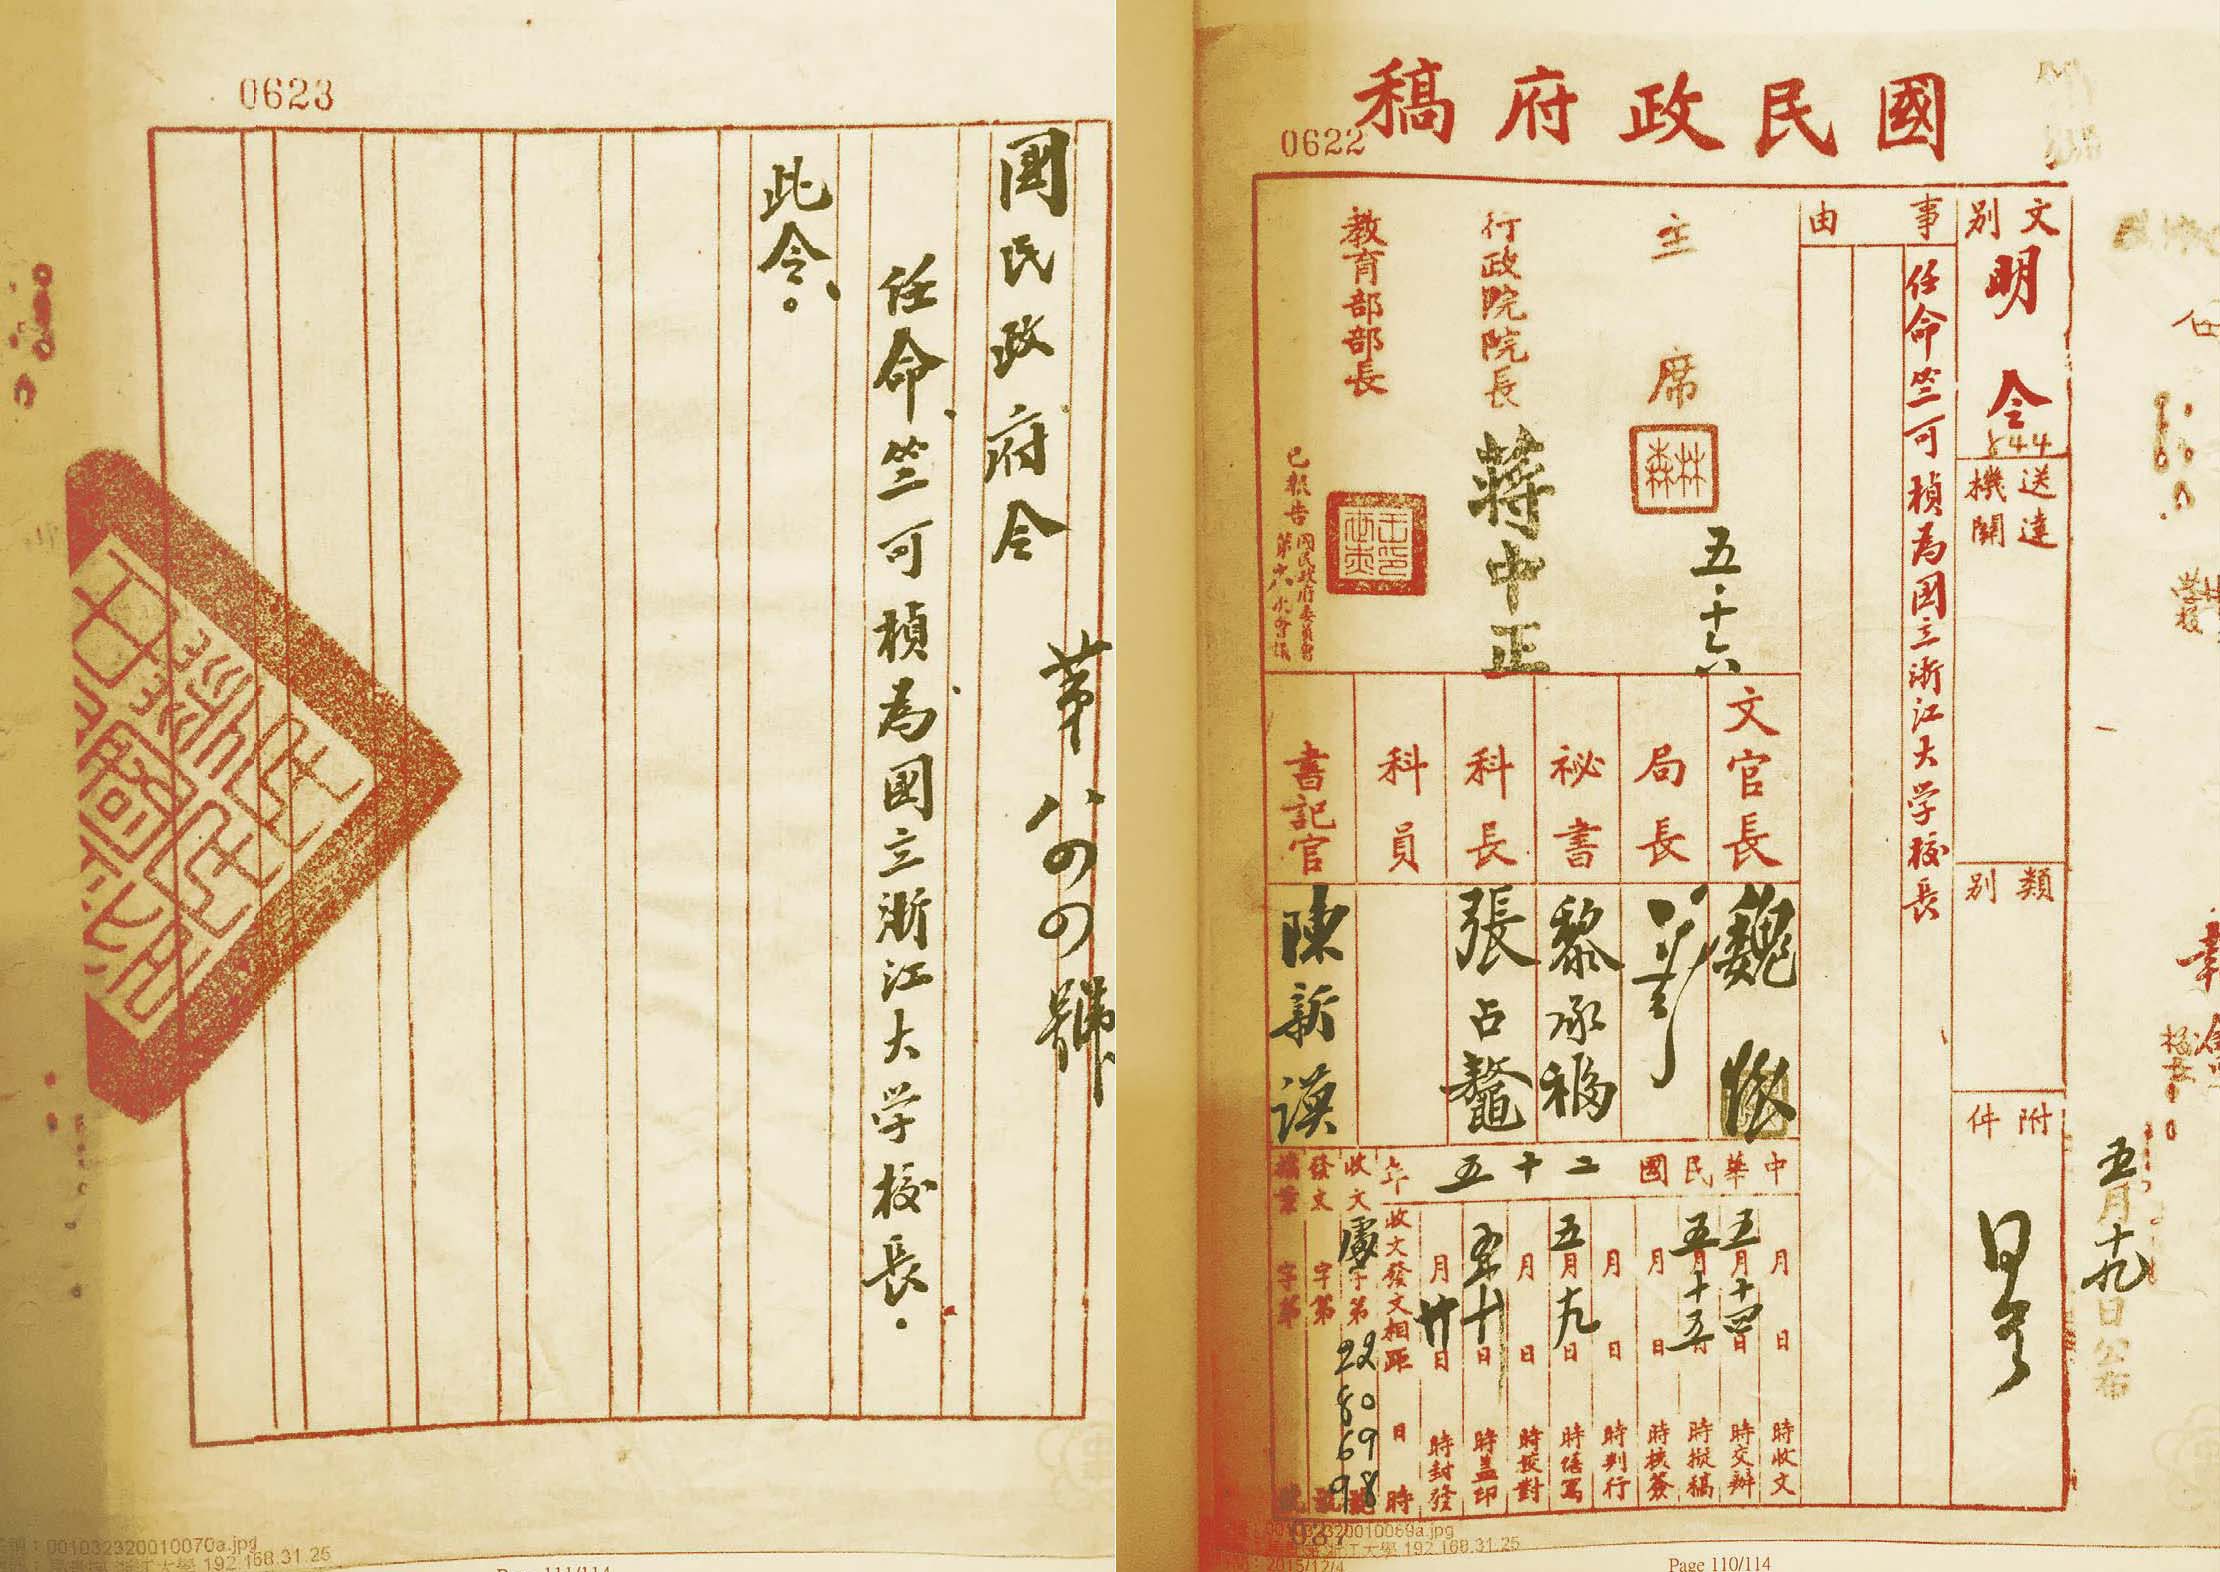 國民政府稿
0622
文別
明令
844
送達機關
類別
附件
事由
任命竺可楨為國立浙江大学校長
主席
林森
五·十六
行政院院長
蔣中正
教育部部長
已報告國民政府委員會
文官長
魏懷
局長
祕書
黎承福
科長
張占鰲
科員
書記官
陳新謨
中華民國二十五年
月日時收文
五月十四日時交辦
五月十五日時擬稿
月日時核簽
月日時判行
五月十九日時繕寫
月日時校對
時盖印
月廿日時封發
收文發文相距日時
收文字第2280 69 98號
發文字第號
檔案字第號
五月十九日公布
Page 110/114
001032320010069a.jpg
浙江大學 192.168.31.25
2015/12/4
0623
國民政府令
第八四四號
任命竺可楨為國立浙江大学校長。
此令。
001032320010070a.jpg
浙江大學 192.168.31.25
Page 111/114